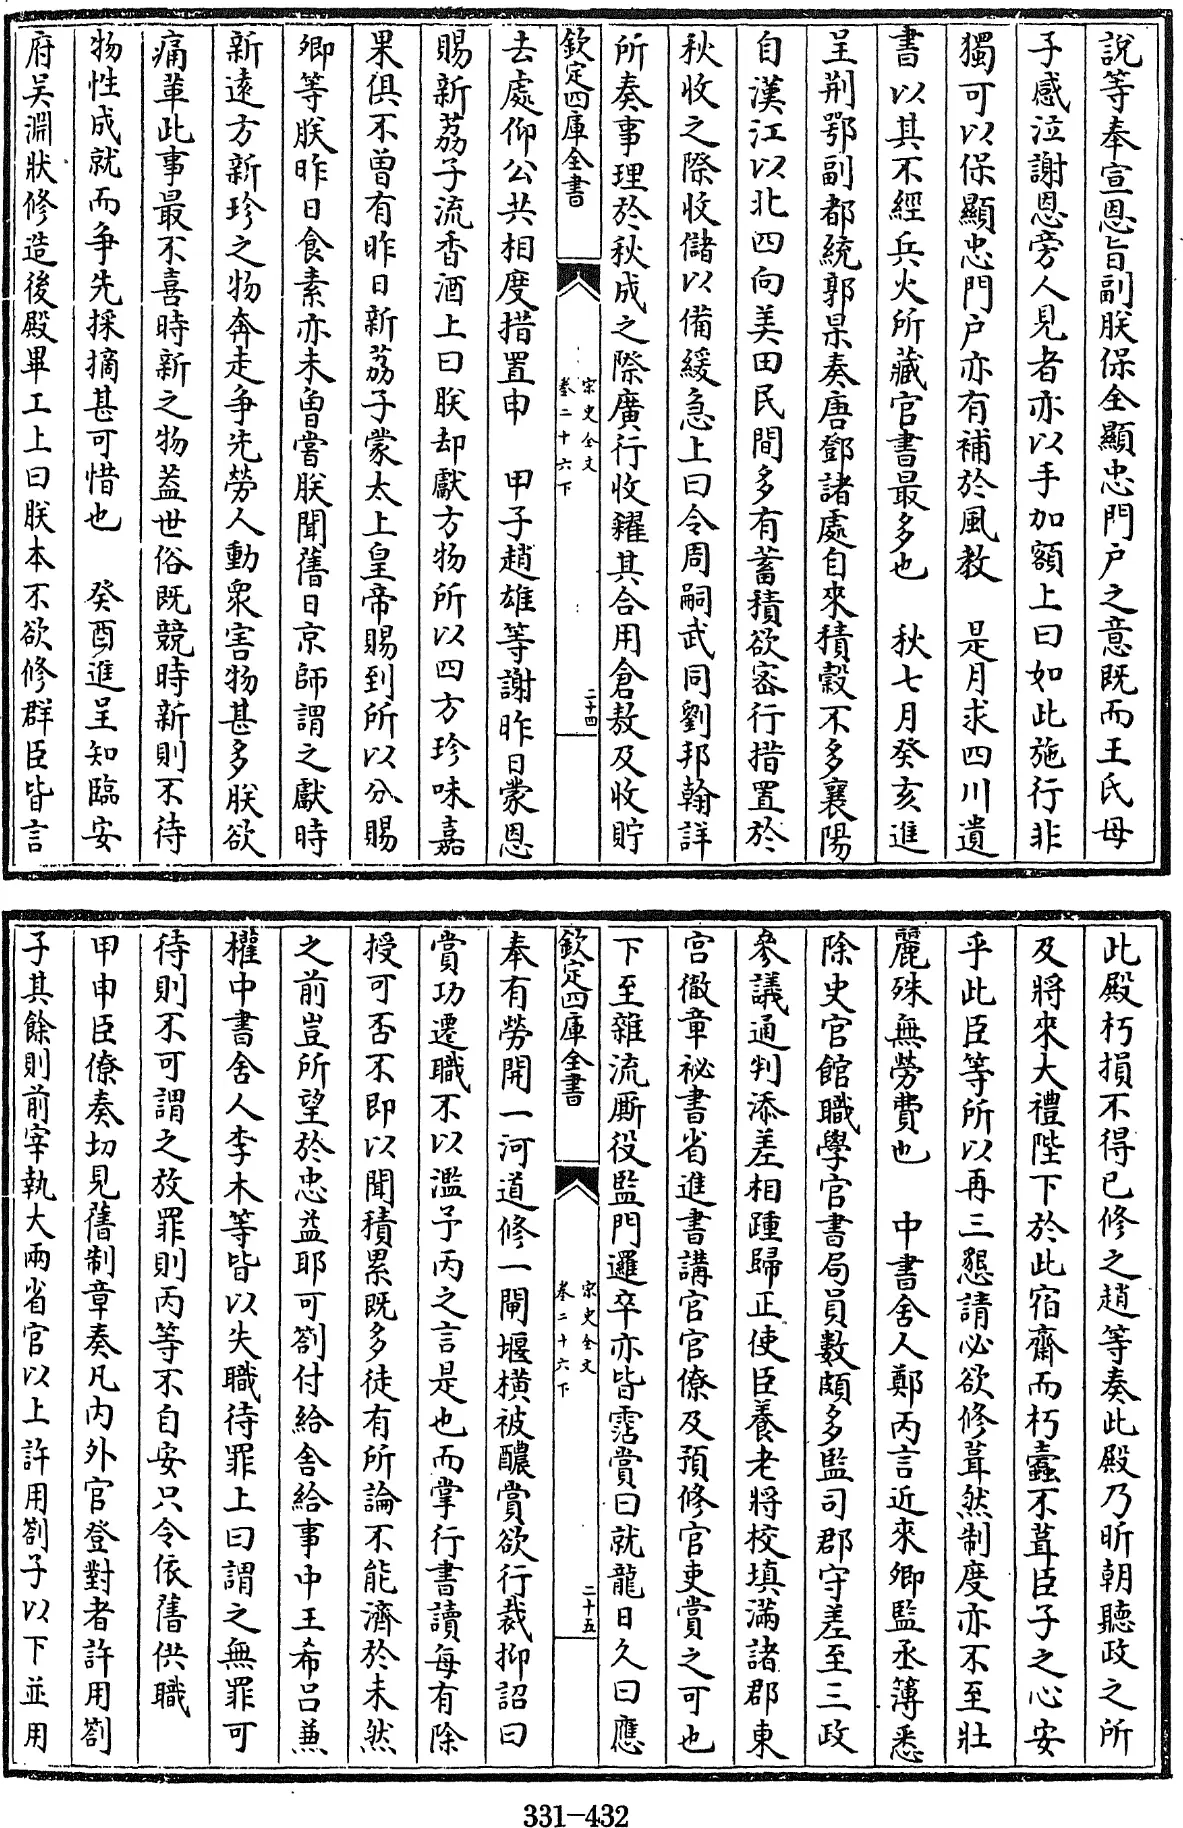 說等奉宣恩旨副朕保全顯忠門戸之意既而王氏母
子感泣謝恩旁人見者亦以手加額上曰如此施行非
獨可以保顯忠門戸亦有補於風教　是月求四川遺
書以其不經兵火所藏官書最多也　秋七月癸亥進
呈荆鄂副都統郭杲奏唐鄧諸處自來積糓不多襄陽
自漢江以北四向美田民間多有蓄積欲宻行措置於
秋收之際收儲以備緩急上曰令周嗣武同劉邦翰詳
所奏事理於秋成之際廣行收糴其合用倉敖及收貯
欽定四庫全書
宋史全文
卷二十六下
二十四
去處仰公共相度措置申　甲子趙雄等謝昨日蒙恩
賜新荔子流香酒上曰朕却獻方物所以四方珍味嘉
果俱不曽有昨日新荔子蒙太上皇帝賜到所以分賜
卿等朕昨日食素亦未曽嘗朕聞舊日京師謂之獻時
新逺方新珍之物奔走争先勞人動衆害物甚多朕欲
痛革此事最不喜時新之物葢世俗既競時新則不待
物性成就而争先採摘甚可惜也　癸酉進呈知臨安
府吴淵狀修造後殿畢工上曰朕本不欲修群臣皆言
此殿朽損不得已修之趙等奏此殿乃昕朝聽政之所
及將來大禮陛下於此宿齋而朽蠧不葺臣子之心安
乎此臣等所以再三懇請必欲修葺然制度亦不至壯
麗殊無勞費也　中書舍人鄭丙言近來卿監丞簿悉
除史官館職學官書局員數頗多監司郡守差至三政
叅議通判添差相踵歸正使臣養老將校填滿諸郡東
宫徹章秘書省進書講官官僚及預修官吏賞之可也
下至雜流厮役監門邏卒亦皆霑賞曰就龍日久曰應
欽定四庫全書
宋史全文
卷二十六下
二十五
奉有勞開一河道修一閘堰横被醲賞欲行裁抑詔曰
賞功遷職不以濫予丙之言是也而掌行書讀每有除
授可否不即以聞積累既多徒有所論不能濟於未然
之前豈所望於忠益耶可劄付給舍給事中王希吕兼
權中書舍人李木等皆以失職待罪上曰謂之無罪可
待則不可謂之放罪則丙等不自安只令依舊供職
甲申臣僚奏切見舊制章奏凡内外官登對者許用劄
子其餘則前宰執大兩省官以上許用劄子以下並用
331-432